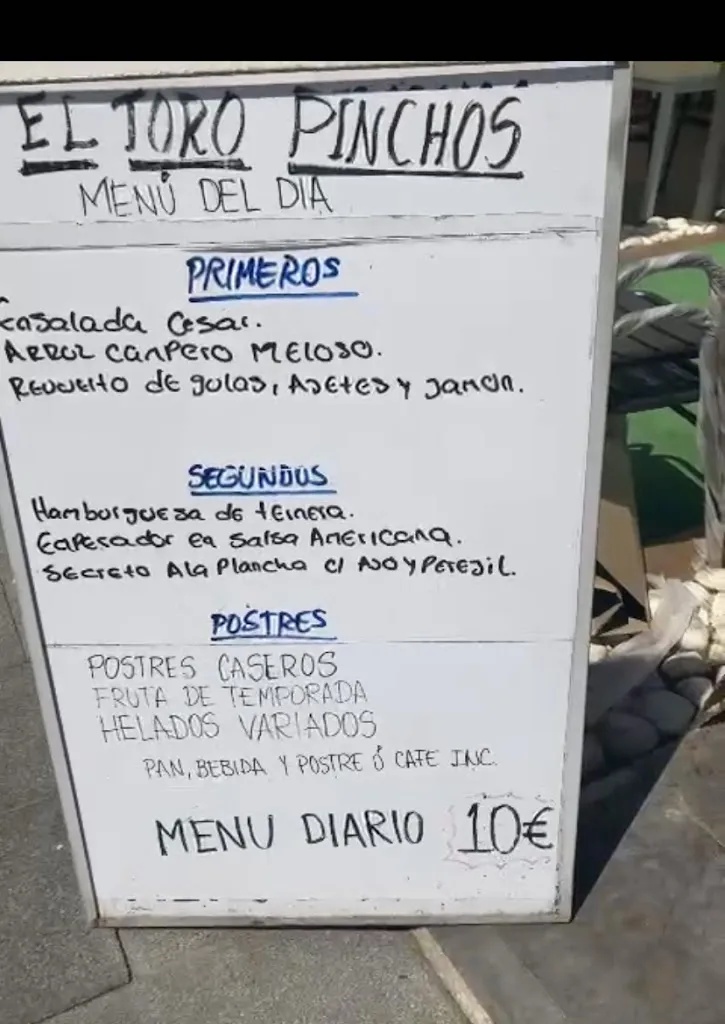 EL TORO PINCHOS
MENÚ DEL DIA
PRIMEROS
Ensalada Cesar.
ARROZ CAMPERO MELOSO.
REVUELTO de gulas, AJETES y JAMON.
SEGUNDOS
Hamburguesa de ternera.
Emperador en salsa AMERICANA.
SECRETO A la Plancha c/ AJO y PEREJIL.
POSTRES
POSTRES CASEROS
FRUTA DE TEMPORADA
HELADOS VARIADOS
PAN, BEBIDA Y POSTRE Ó CAFE INC.
MENU DIARIO 10€